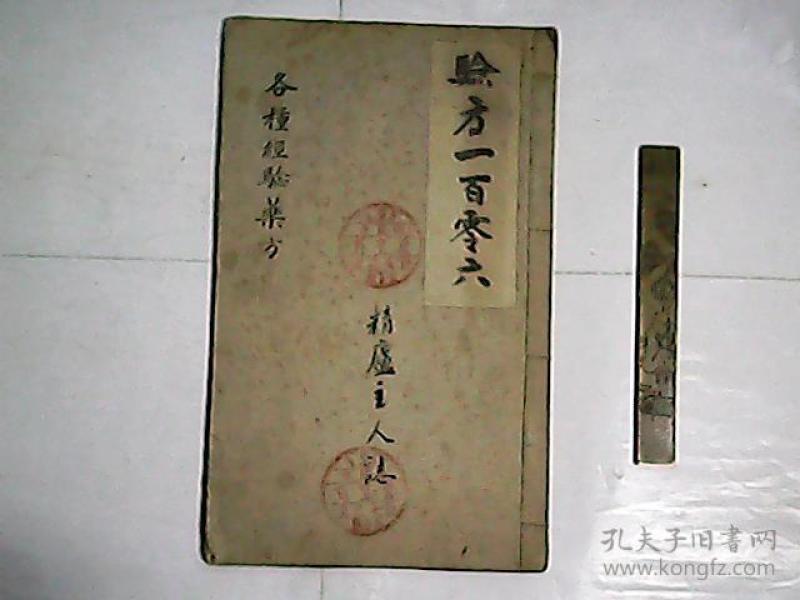 验方一百零六
精廬主人誌
各種经驗藥方
孔夫子旧书网
www.kongfz.com